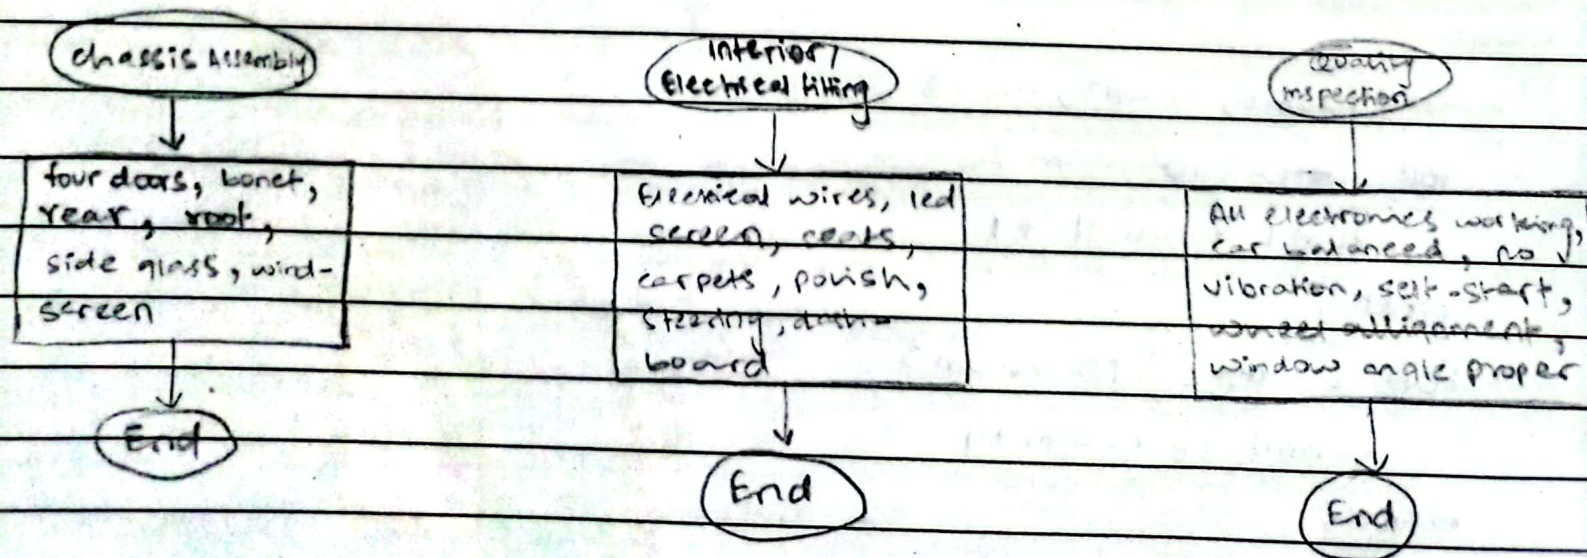 Chassis Assembly
four doors, bonet,
rear, roof,
side glass, wind-
screen
End
Interior/
Electrical fitting
Electrical wires, led
screen, seats,
carpets, polish,
steering, dash-
board
End
Quality
inspection
All electronics working,
car balanced, no
vibration, self-start,
wheel allignment,
window angle proper
End